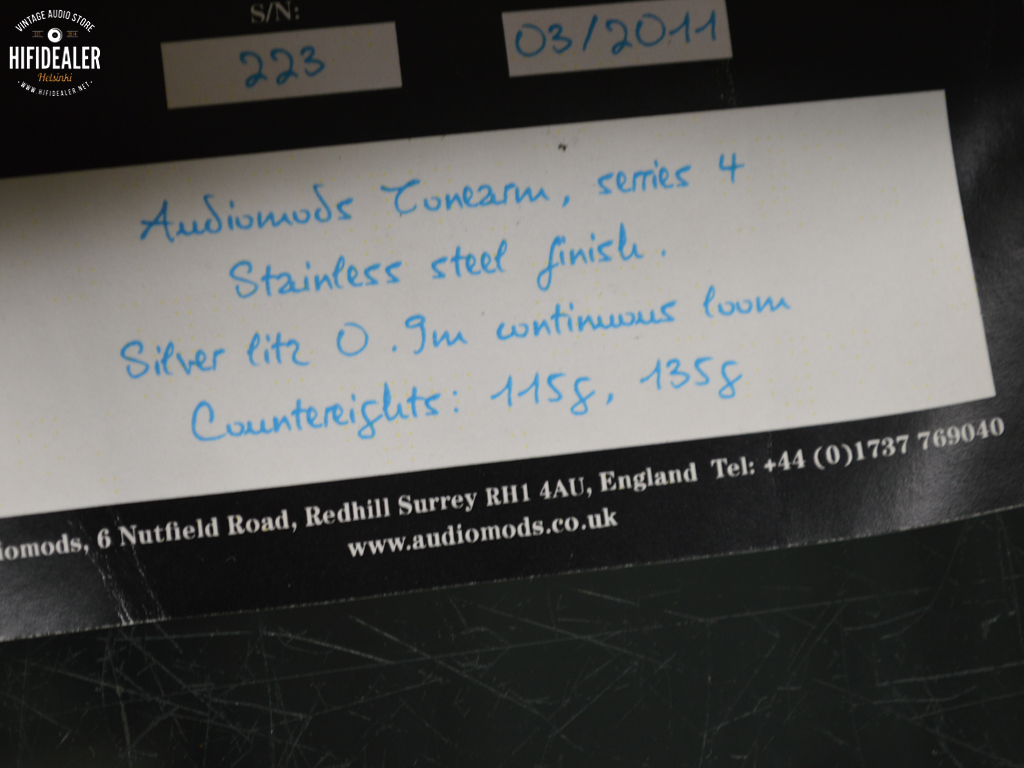 VINTAGE AUDIO STORE
HIFIDEALER
Helsinki
WWW.HIFIDEALER.NET
S/N:
223 03/2011
Audiomods Tonearm, serries 4
Stainless steel finish.
Silver litz 0.9m continuous loom
Countereights: 115g, 135g
iomods, 6 Nutfield Road, Redhill Surrey RH1 4AU, England Tel: +44 (0)1737 769040
www.audiomods.co.uk